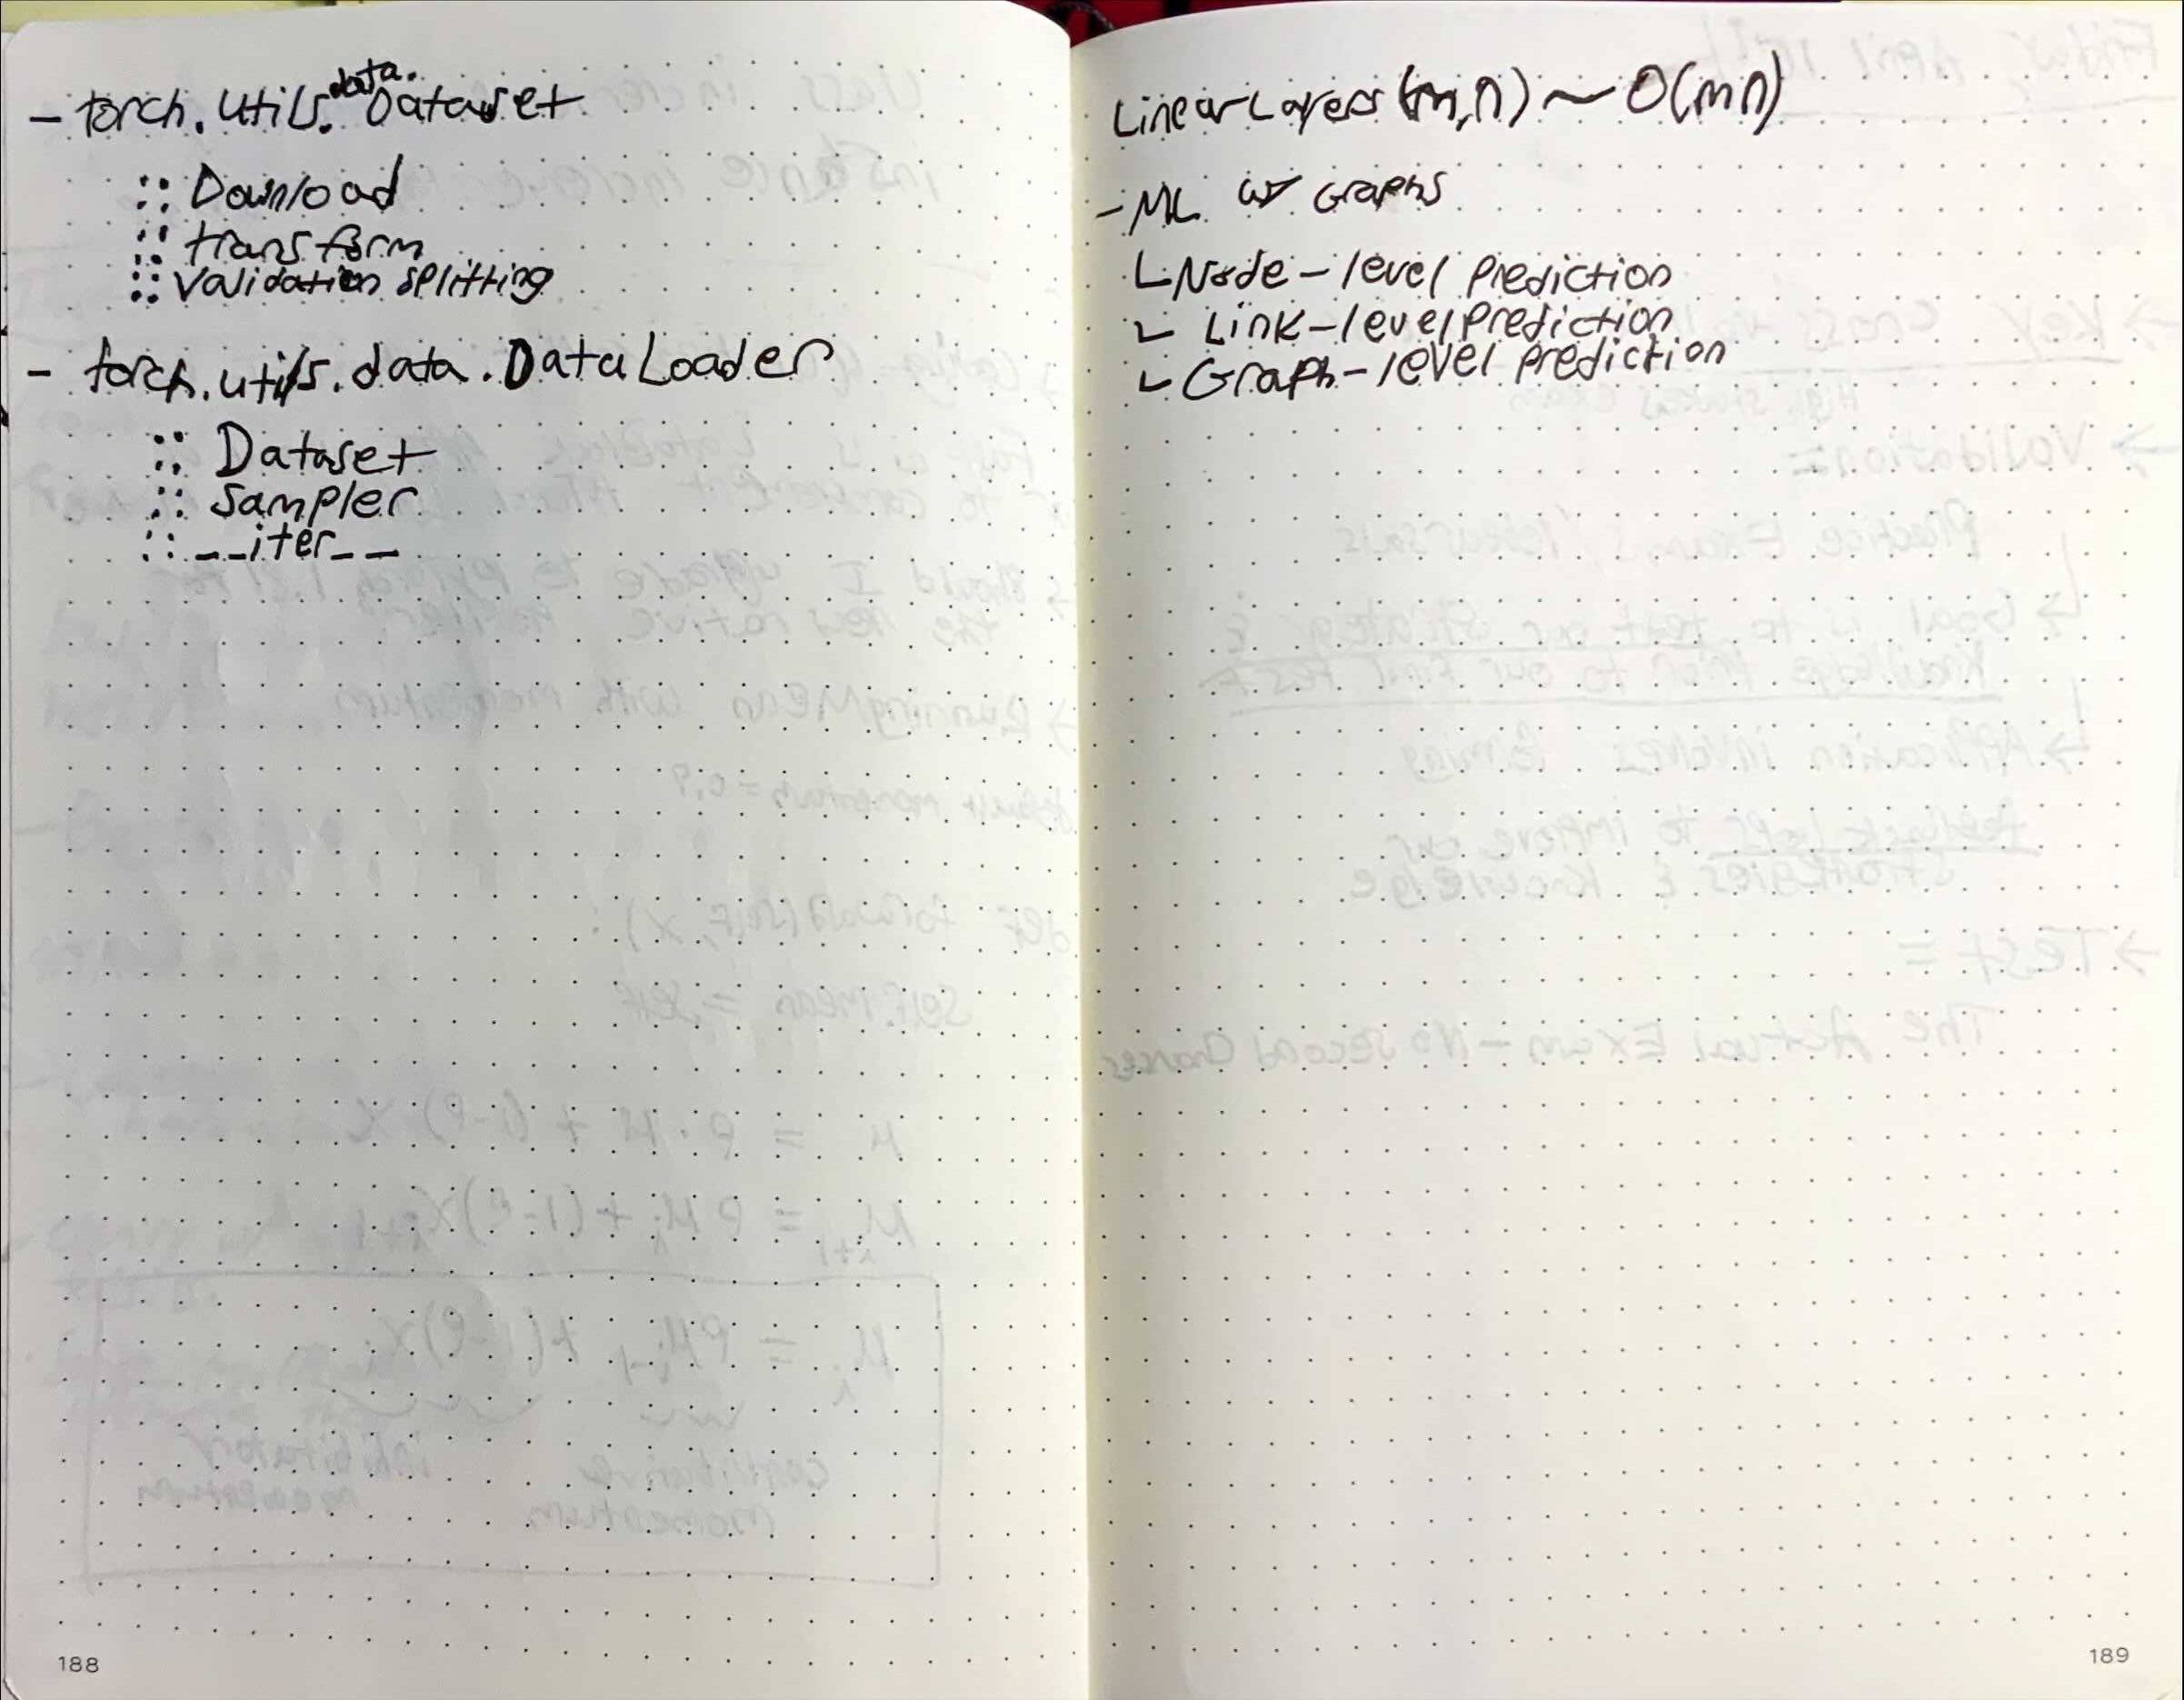 - torch.utils.data.Dataset
:: Download
:: transform
:: Validation splitting
- torch.utils.data.DataLoader
:: Dataset
:: Sampler
:: __iter__
188
Linear Layers (m,n) ~ O(mn)
- ML w/ Graphs
Node-level Prediction
Link-level Prediction
Graph-level Prediction
189